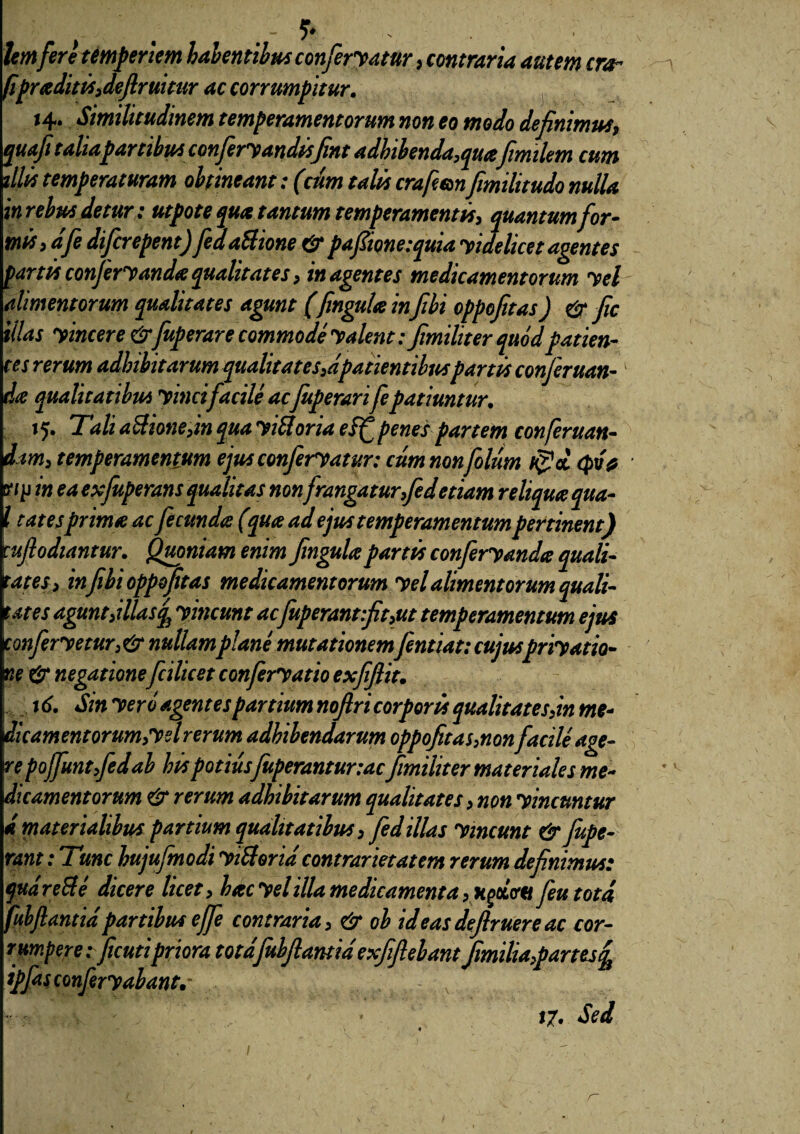 5.
lem ferè temperiem habentibus conservatur, contraria autem cra-
si præditis, destruitur ac corrumpitur.
14. Similitudinem temperamentorum non eo modo definimus,
quasi talia partibus conservandis sint adhibenda, quæ similem cum
illis temperaturam obtineant: (cùm talis craseωn similitudo nulla
in rebus detur: utpote quæ tantum temperamentis, quantum for-
mis, à se discrepent) sed actione & passione: quia videlicet agentes
partis conservandæ qualitates, in agentes medicamentorum vel
alimentorum qualitates agunt (singulæ in sibi oppositas) & sic
illas vincere & superare commodè valent: similiter quòd patien-
tes rerum adhibitarum qualitates, à patientibus partis conseruan-
dæ qualitatibus vinci facilè ac superari se patiuntur.
15. Tali actione, in qua victoria est penes partem conseruan-
dam, temperamentum ejus conservatur: cùm non solùm
in ea exsuperans qualitas non frangatur, sed etiam reliquæ qua-
l tates primæ ac secundæ (quæ ad ejus temperamentum pertinent)
custodiantur. Quoniam enim singulæ partis conservandæ quali-
tates, in sibi oppositas medicamentorum vel alimentorum quali-
tates agunt, illasq; vincunt ac superant: fit, ut temperamentum ejus
conservetur, & nullam planè mutationem sentiat: cujus privatio-
ne & negatione scilicet conservatio exsistit.
16. Sin verò agentes partium nostri corporis qualitates, in me-
dicamentorum, vel rerum adhibendarum oppositas, non facilè age-
re possunt, sed ab his potiùs superantur: ac similiter materiales me-
dicamentorum & rerum adhibitarum qualitates, non vincuntur
à materialibus partium qualitatibus, sed illas vincunt & supe-
rant: Tunc hujusmodi victoriâ contrarietatem rerum definimus:
quâ rectè dicere licet, hæc vel illa medicamenta, κράσει seu totâ
substantiâ partibus esse contraria, & ob id eas destruere ac cor-
rumpere: sicuti priora totâ substantiâ exsistebant similia, partesq;
ipsas conservabant.
17. Sed